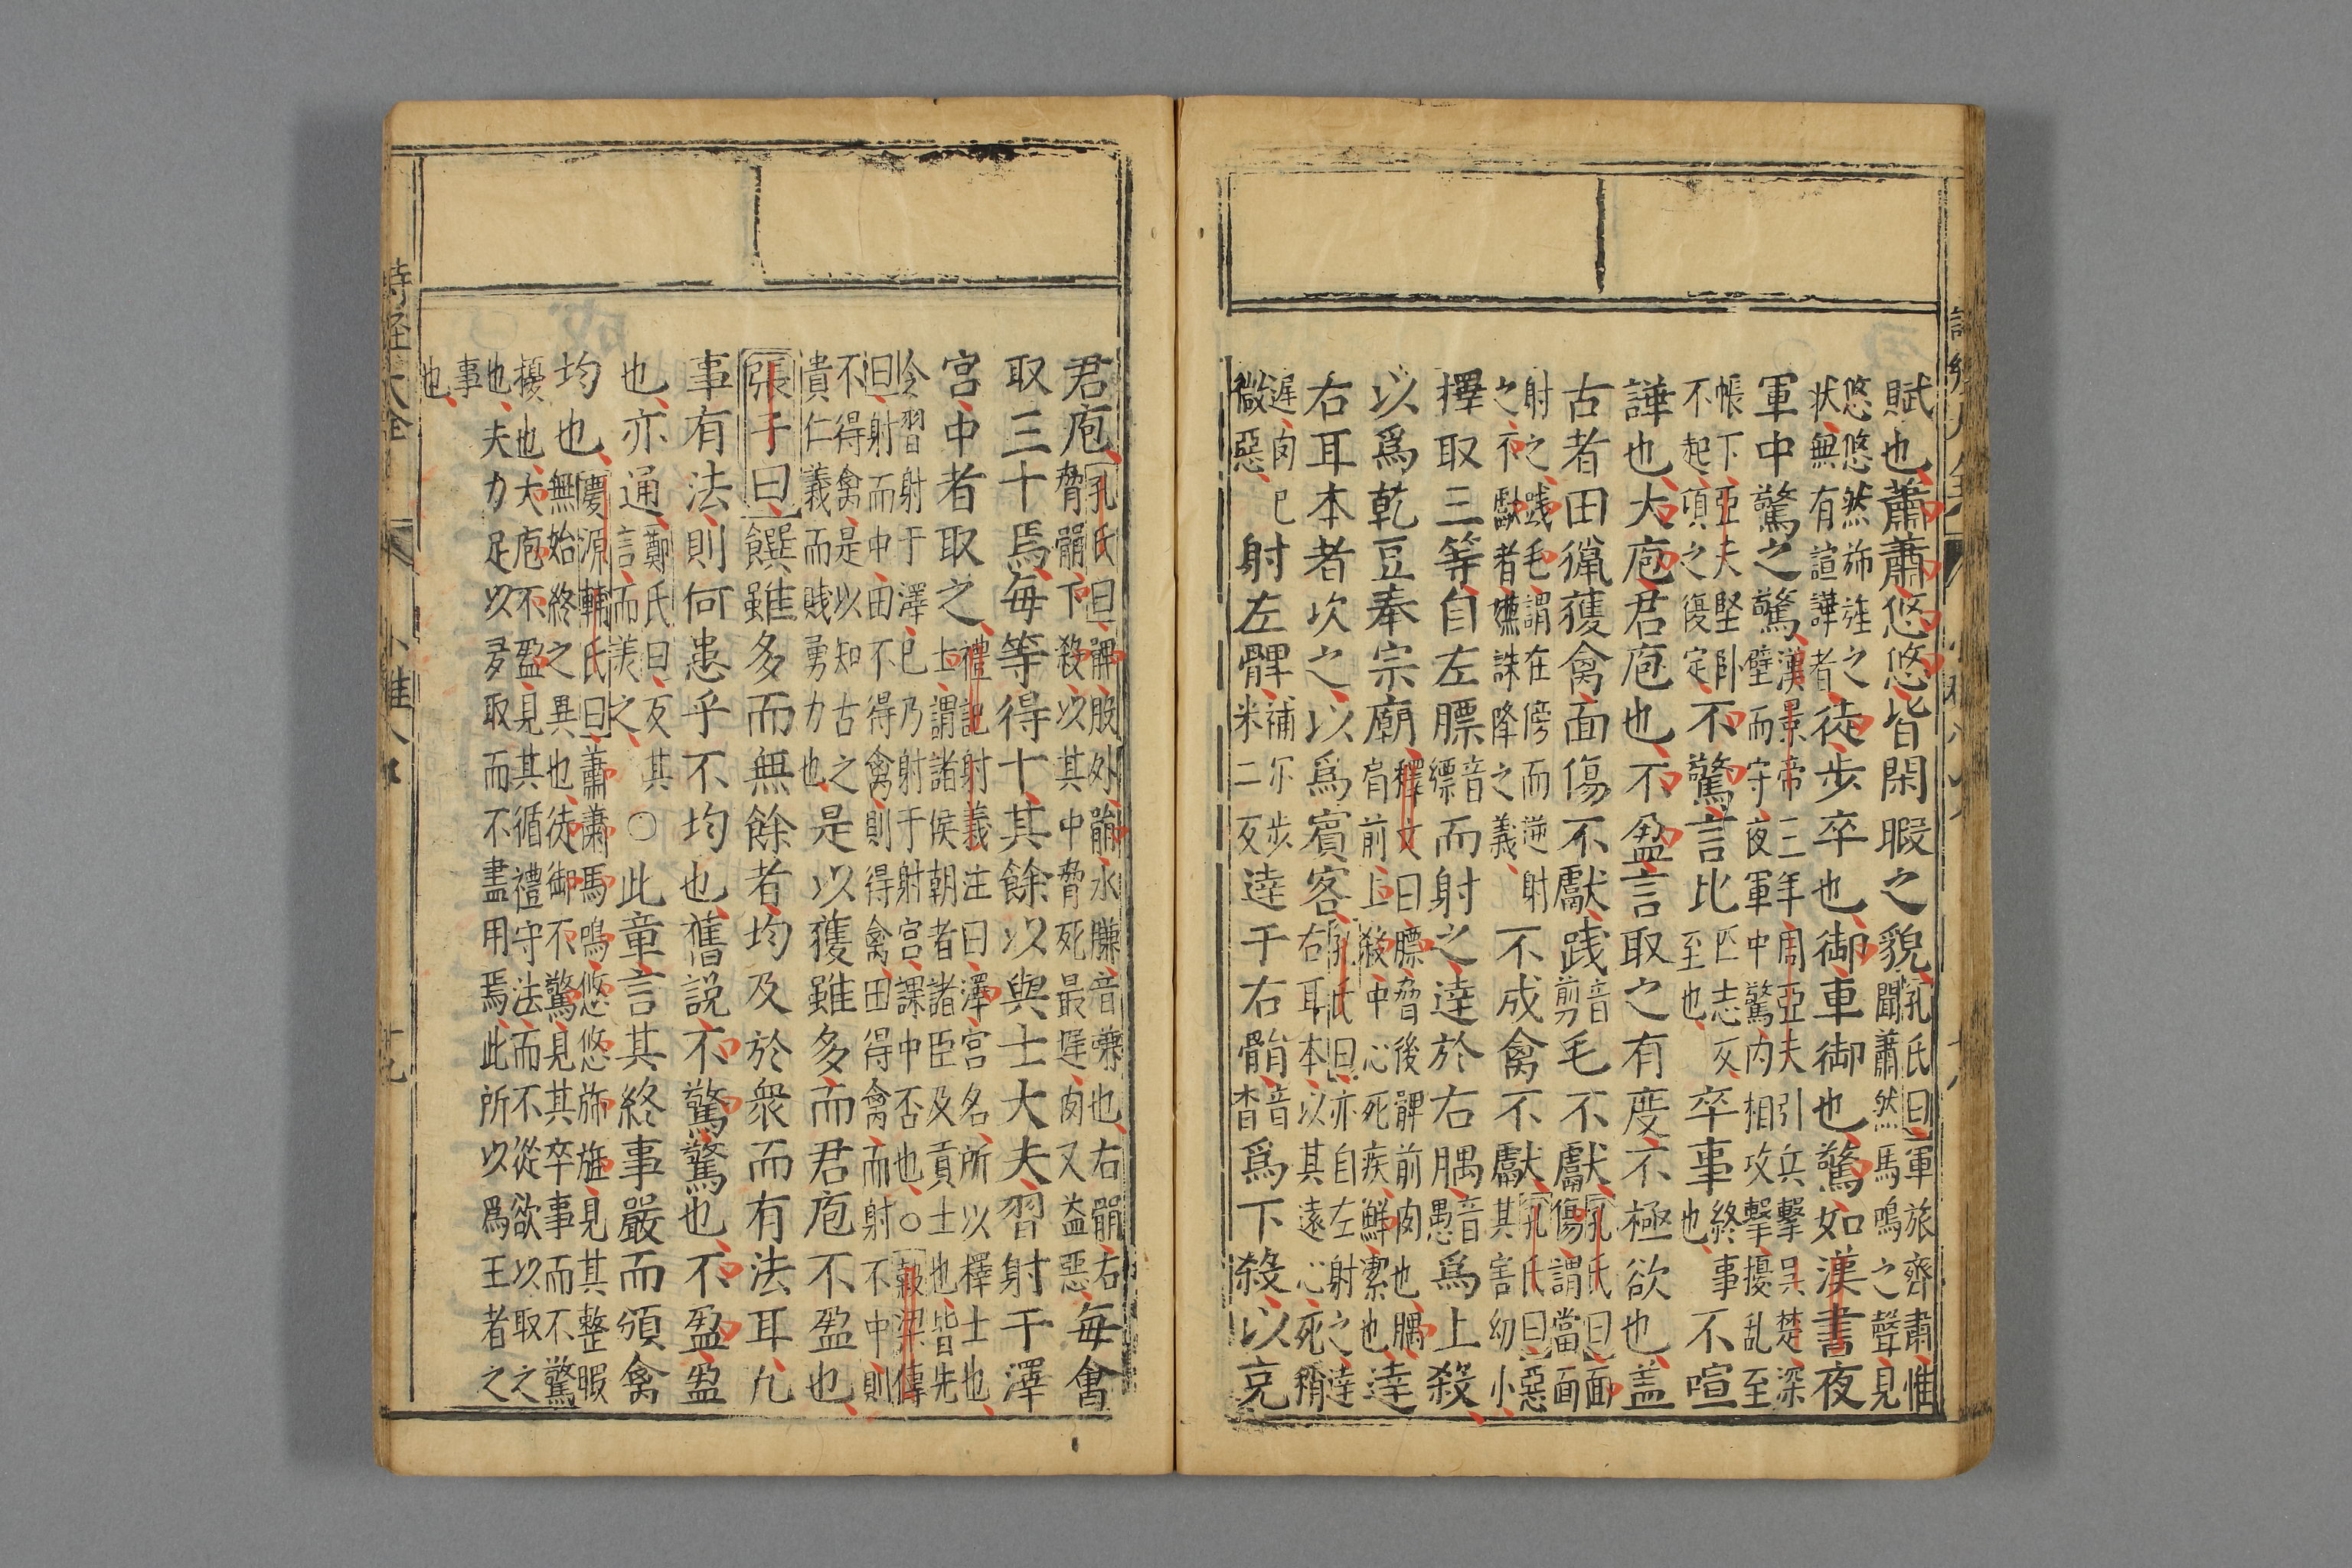 賦也蕭蕭悠悠皆閑暇之貌孔氏曰軍旅齊肅惟聞蕭然馬鳴之聲見
悠悠然斾旌之状無有諠譁者徒步卒也御車御也驚如漢書夜
軍中驚之驚漢景帝三年周亞夫引兵擊吳楚深壁而守夜軍中驚内相攻擊擾乱至
帳下亞夫堅卧不起頃之復定不驚言比匹志反至也卒事終事也不喧
譁也大庖君庖也不盈言取之有度不極欲也盖
古者田獵獲禽面傷不獻践音剪毛不獻孔氏曰面傷謂當面
射之践毛謂在傍而逆射之不獻者嫌誅降之義不成禽不獻孔氏曰惡其害幼小
擇取三等自左膘音縹而射之達於右腢音愚爲上殺
以爲乾豆奉宗廟釋文曰膘脅後髀前肉也腢肩前上殺中心死疾鮮潔也達
右耳本者次之以爲賓客孔氏曰亦自左射之達右耳本以其遠心死稍
遲肉已微惡射左髀補尔步米二反達于右䯚音杳爲下殺以充
君庖孔氏曰髀股外䯚水膁音慊也右䯚右脅䯚下殺以其中脅死最遲肉又益惡毎禽
取三十焉毎等得十其餘以與士大夫習射于澤
宮中者取之禮記射義注曰澤宮名所以擇士也士謂諸侯朝者諸臣及貢士也皆先
令習射于澤已乃射于射宮課中否也○穀梁傳曰射而中田不得禽則得禽田得禽而射不中則
不得禽是以知古之貴仁義而賎勇力也是以獲雖多而君庖不盈也
張子曰饌雖多而無餘者均及於衆而有法耳凢
事有法則何患乎不均也舊說不驚驚也不盈盈
也亦通鄭氏曰反其言而羙之○此章言其終事嚴而頒禽
均也慶源輔氏曰蕭蕭馬鳴悠悠斾旌見其整暇無始終之異也徒御不驚見其卒事而不驚
擾也大庖不盈見其循禮守法而不從欲以取之也夫力足以多取而不盡用焉此所以爲王者之
事也
詩經大全 小雅八 十九